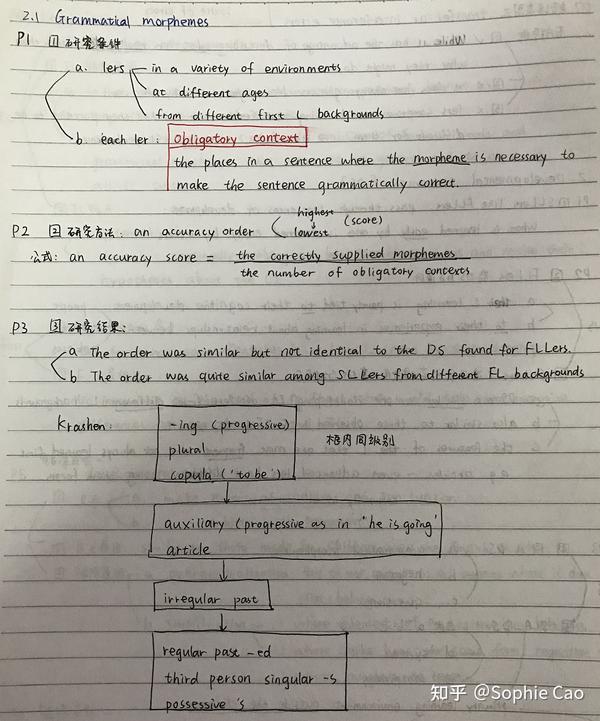 2.1 Grammatial morphemes
P1 ① 研究条件
a. lers in a variety of environments
at different ages
from different first L backgrounds
b. each ler: obligatory context
the places in a sentence where the morpheme is necessary to
make the sentence grammatically correct.
P2 ② 研究方法: an accuracy order highest lowest (score)
公式: an accuracy score = the correctly supplied morphemes
the number of obligatory contexts
P3 ③ 研究结果:
a The order was similar but not identical to the DS found for FLLers.
b The order was quite similar among SLLers from different FL backgrounds
Krashen: -ing (progressive)
plural
copula ('to be')
框内同级别
auxiliary (progressive as in 'he is going'
article
irregular past
regular past -ed
third person singular -s
possessive 's
知乎 @Sophie Cao